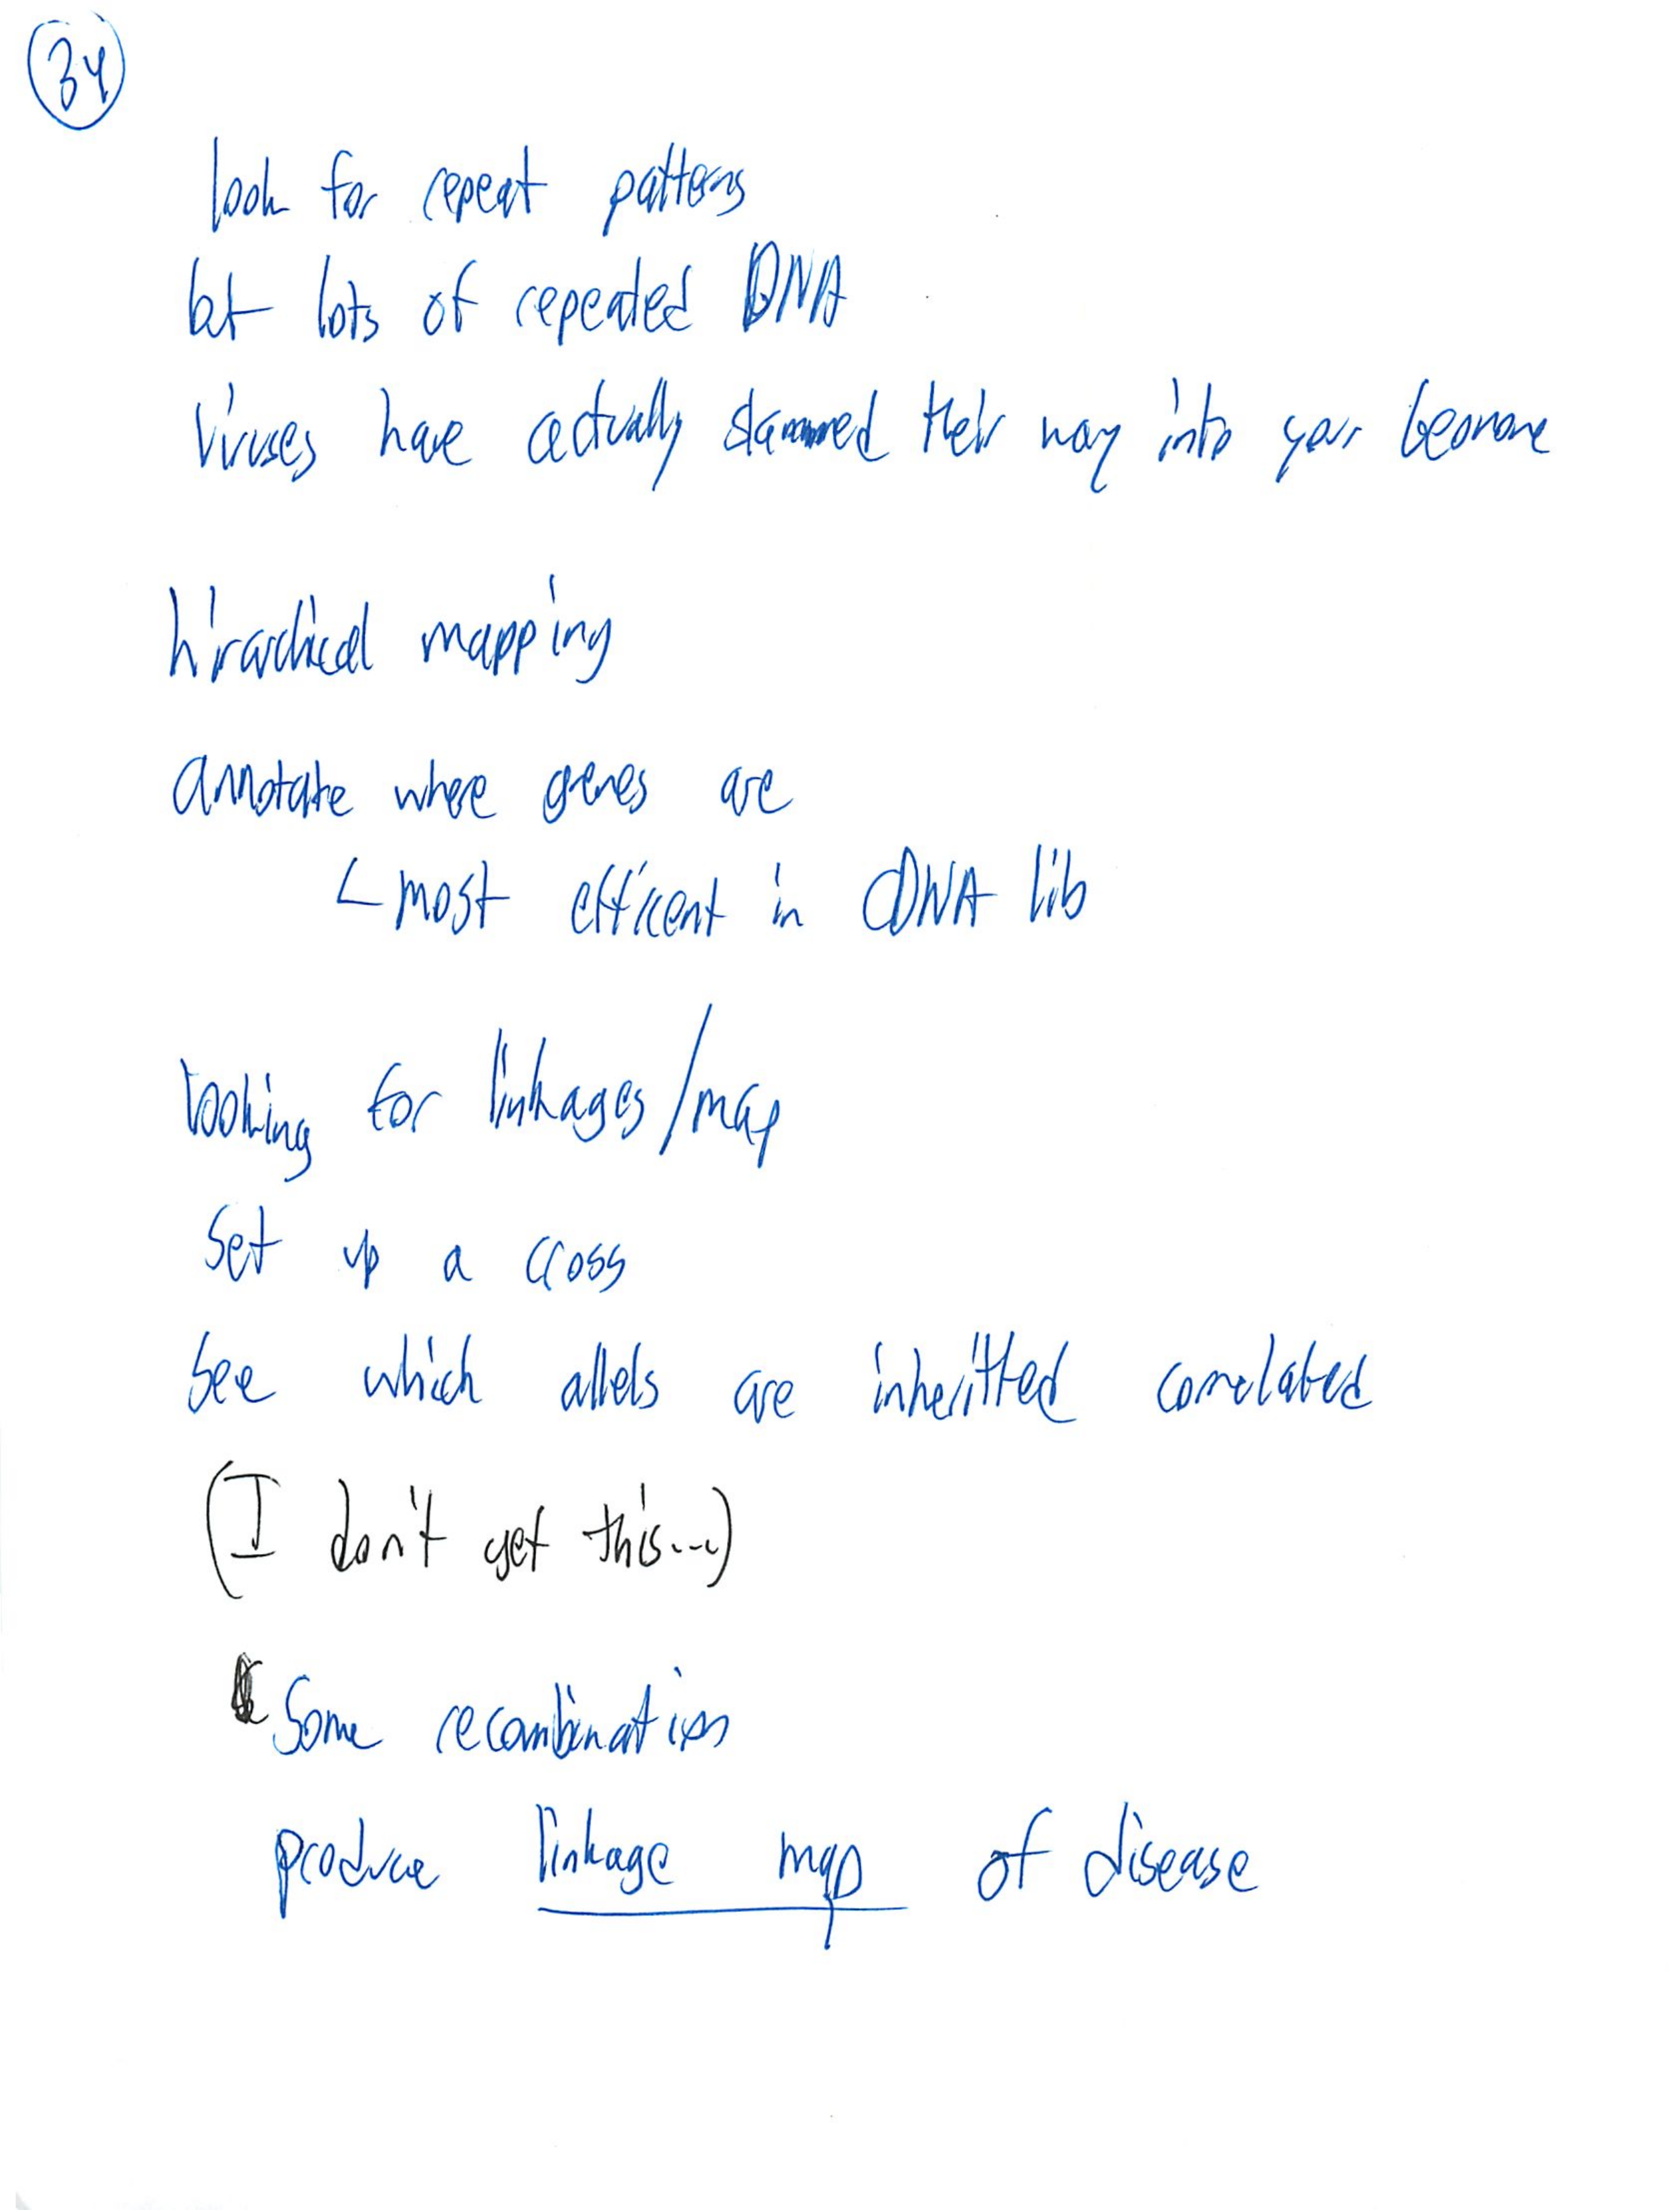 34
look for repeat patterns
but lots of repeated DNA
Viruses have actually slammed their way into your genome
hirarchical mapping
annotate where genes are
most efficent in cDNA lib
looking for linkages/map
Set up a cross
See which allels are inheritted correlated
(I don't get this...)
Some recombination
produce linkage map of disease